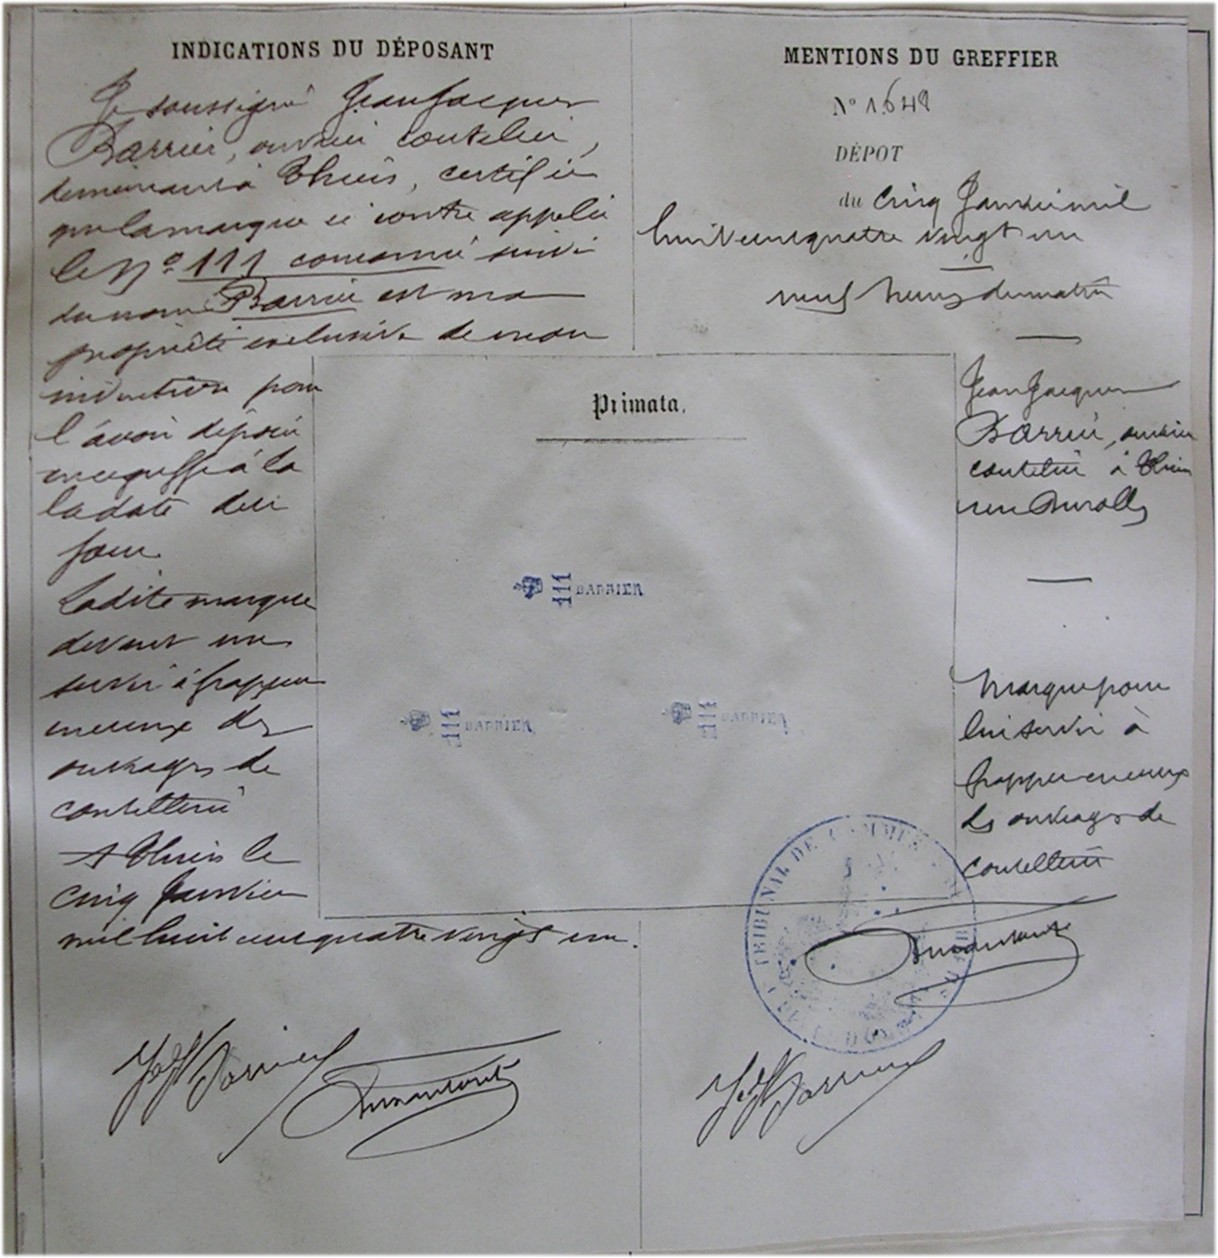 INDICATIONS DU DÉPOSANT
Je soussigné Jean Jacques
Barrier, ouvrier coutelier,
demeurant à Thiers, certifie
que la marque ci contre appelée
le Nº 111 couronné suivi
du nom Barrier est ma
propriété exclusive de mon
industrie pour
l'avoir déposée
au greffe à la
la date de ce
jour
Ladite marque
devant me
servir à frapper
en creux des
ouvrages de
coutellerie
A Thiers le
cinq Janvier
mil huit cent quatre vingt un.
MENTIONS DU GREFFIER
Nº 1642
DÉPOT
du Cinq Janvier mil
huit cent quatre vingt un
neuf heures du matin
Jean Jacques
Barrier, ouvrier
coutelier à Thiers
rue Durolle
Marque pour
lui servir à
frapper en creux
des ouvrages de
coutellerie
Primata.
111 BARRIER
111 BARRIER
111 BARRIER
TRIBUNAL DE COMMERCE
Barrier
Barrier